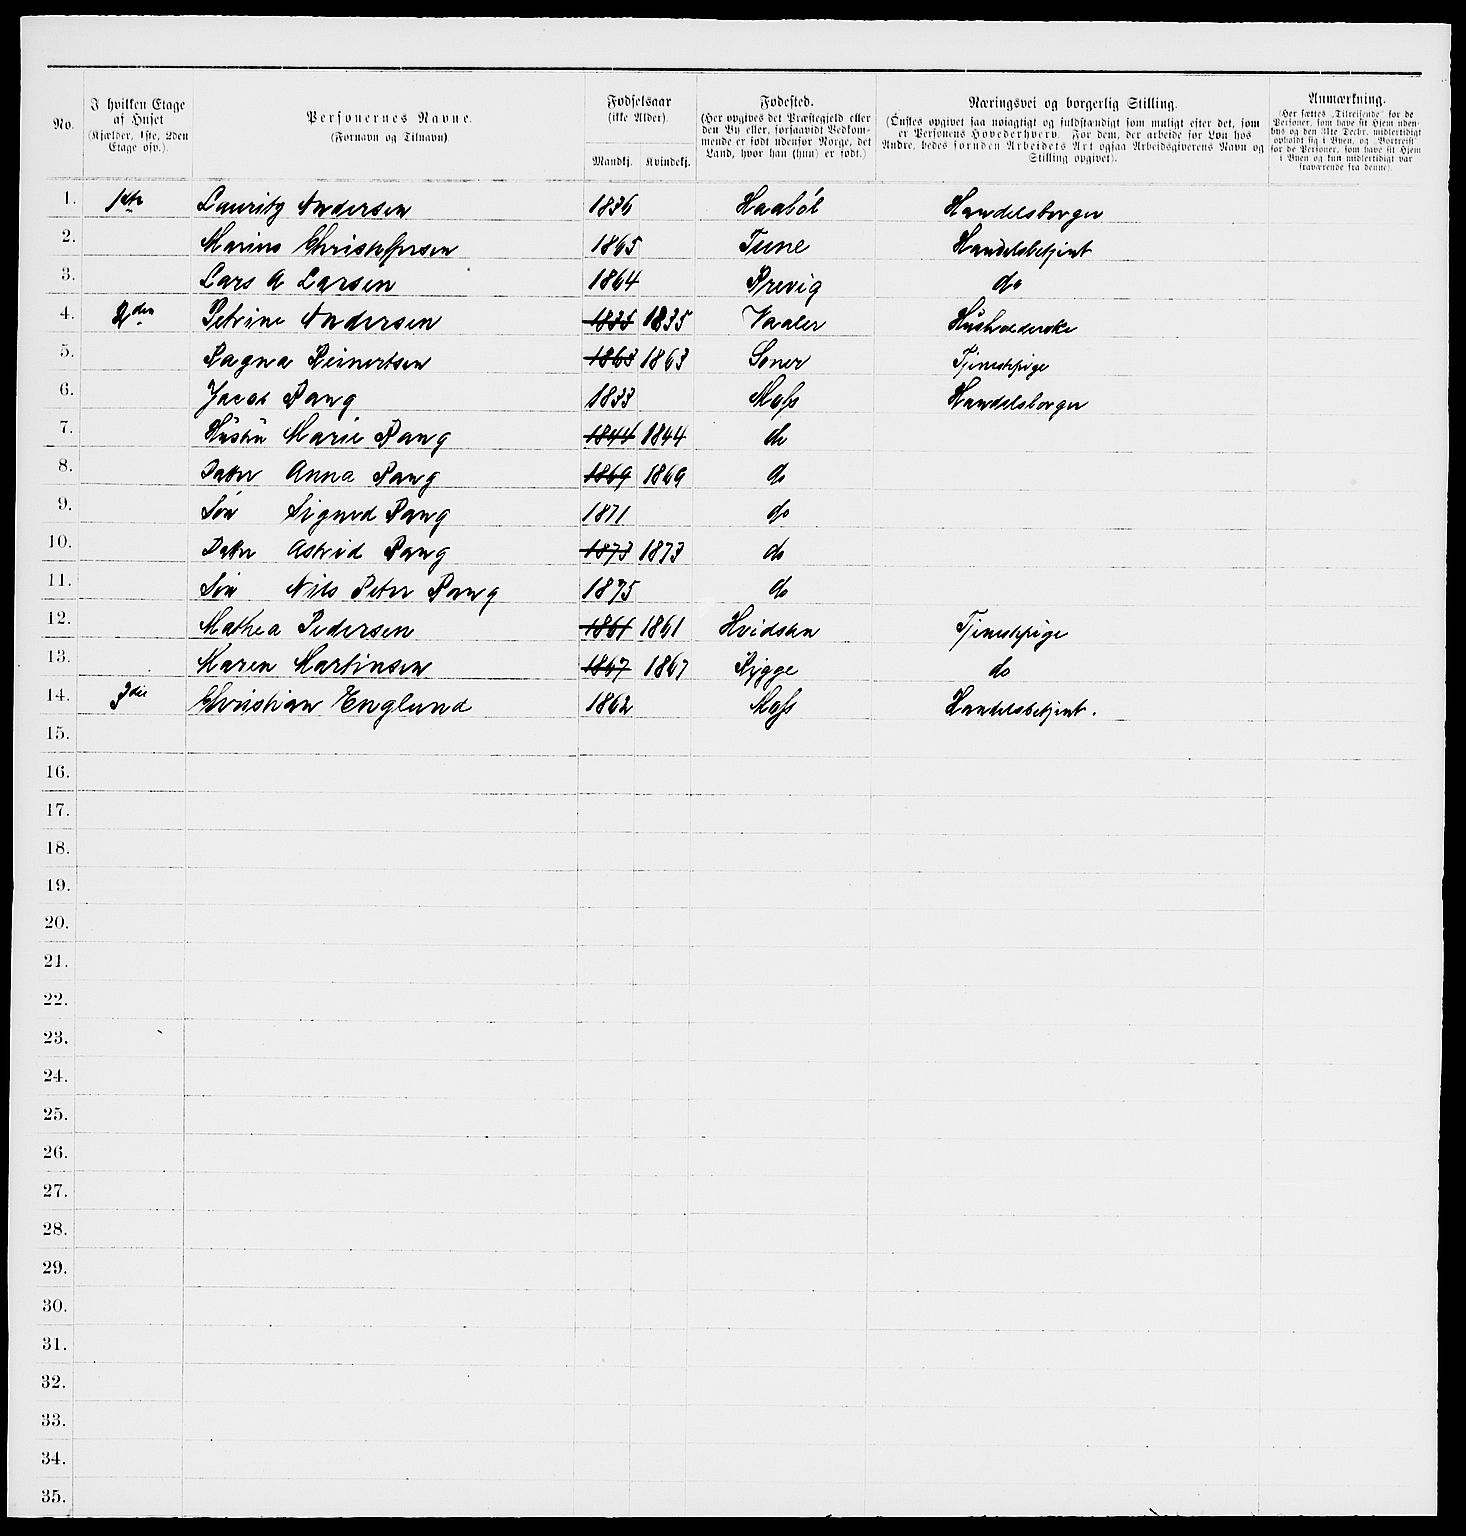 No.
I hvilken Etage af Huset
(Kjælder, 1ste, 2den Etage osv.).
Personernes Navne.
(Fornavn og Tilnavn).
Fødselsaar
(ikke Alder).
Mandkj. Kvindekj.
Fødested.
(Her opgives det Præstegjeld eller
den By eller, forsaavidt Vedkom-
mende er født udenfor Norge, det
Land, hvor han (hun) er født.)
Næringsvei og borgerlig Stilling.
(Ønskes opgivet saa nøiagtigt og fuldstændigt som muligt efter det, som
er Personens Hovederhverv. For dem, der arbeide for Løn hos
Andre, bedes foruden Arbeidets Art ogsaa Arbeidsgiverens Navn og
Stilling opgivet).
Anmærkning.
(Her sættes „Tilreisende" for de
Personer, som have sit Hjem uden-
bys og den 31te Decbr. midlertidigt
opholdt sig i Byen, og „Bortreist"
for de Personer, som have sit Hjem
i Byen og kun midlertidigt var
fraværende fra denne).
1. 1ste Lauritz Andersen 1836 Haabøl Handelsborger
2. Marius Christophersen 1865 Tune Handelsbetjent
3. Lars A Larsen 1864 Brevig do
4. 2den Petrine Andersen 1835 1835 Vaaler Husholderske
5. Ragna Reinertsen 1863 1863 Soner Tjenestpige
6. Jacob Vang 1833 Moss Handelsborger
7. Hustru Marie Vang 1844 1844 do
8. Datter Anna Vang 1869 1869 do
9. Søn Sigurd Vang 1871 do
10. Datter Astrid Vang 1873 1873 do
11. Søn Nils Peter Vang 1875 do
12. Mathea Pedersen 1861 1861 Hvidsten Tjenestpige
13. Karen Martinsen 1867 1867 Rygge do
14. 3die Christian Englund 1862 Moss Handelsbetjent.
15.
16.
17.
18.
19.
20.
21.
22.
23.
24.
25.
26.
27.
28.
29.
30.
31.
32.
33.
34.
35.